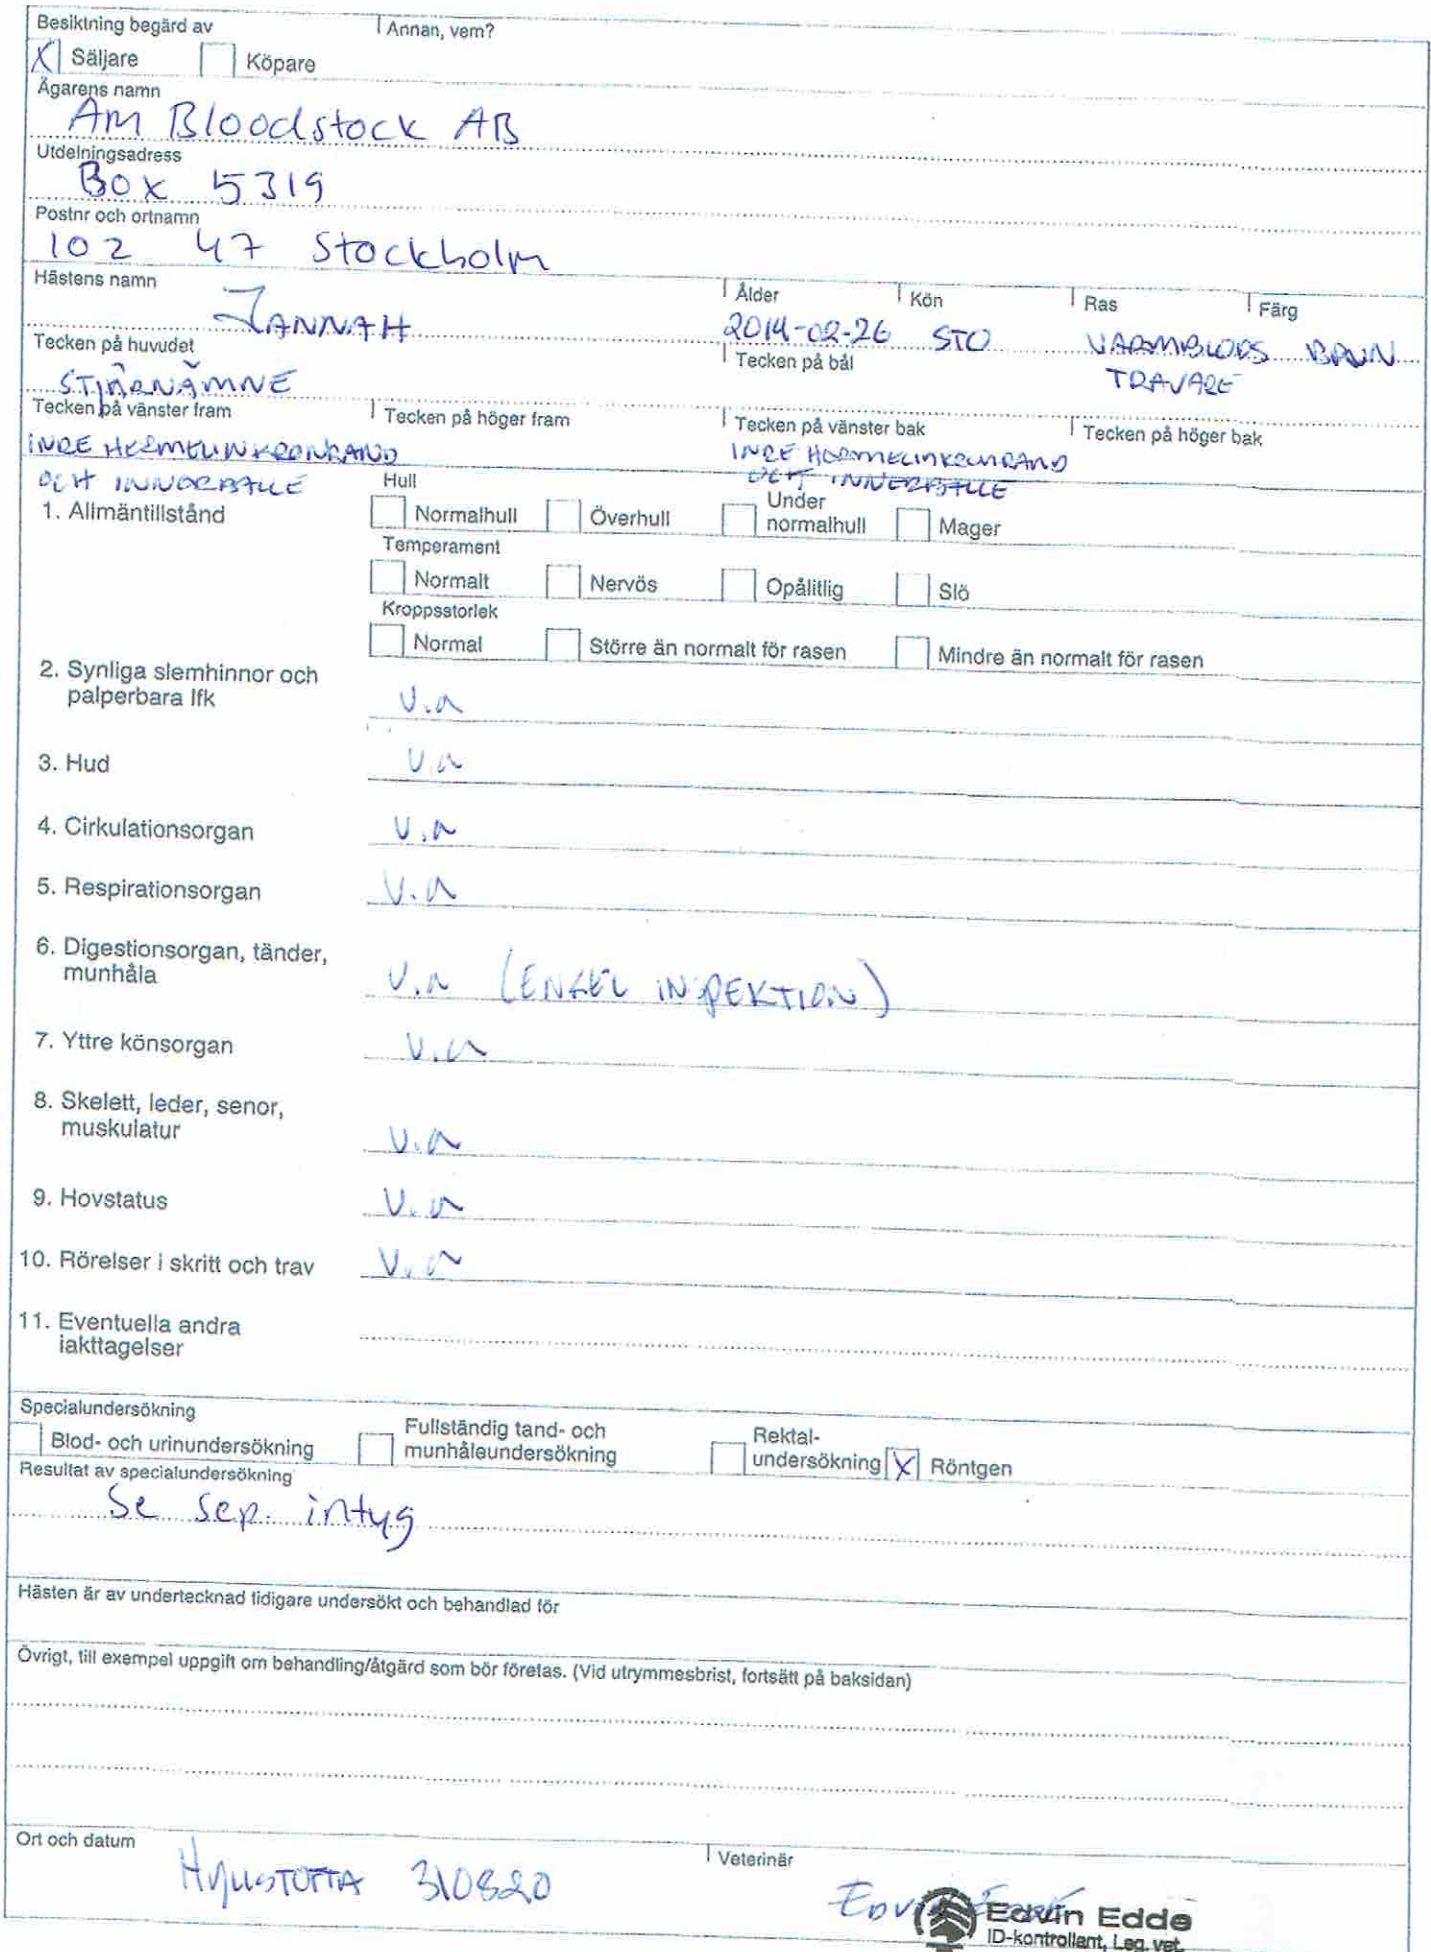 Besiktning begärd av Annan, vem?
X Säljare Köpare
Ägarens namn
Am Bloodstock AB
Utdelningsadress
Box 5319
Postnr och ortnamn
102 47 Stockholm
Hästens namn Ålder Kön Ras Färg
JANNAH 2014-02-26 STO VARMBLODS BRUN
TRAVARE
Tecken på huvudet Tecken på bål
STJÄRNÄMNE
Tecken på vänster fram Tecken på höger fram Tecken på vänster bak Tecken på höger bak
INRE HERMELINKRONRAND INRE HERMELINKRONRAND
OCH INNERBALLE OCH INNERBALLE
1. Allmäntillstånd Hull
Normalhull Överhull Under normalhull Mager
Temperament
Normalt Nervös Opålitlig Slö
Kroppsstorlek
Normal Större än normalt för rasen Mindre än normalt för rasen
2. Synliga slemhinnor och
palperbara lfk v.a
3. Hud v.a
4. Cirkulationsorgan v.a
5. Respirationsorgan v.a
6. Digestionsorgan, tänder,
munhåla v.a (ENKEL INSPEKTION)
7. Yttre könsorgan v.a
8. Skelett, leder, senor,
muskulatur v.a
9. Hovstatus v.a
10. Rörelser i skritt och trav v.a
11. Eventuella andra
iakttagelser
Specialundersökning
Blod- och urinundersökning Fullständig tand- och munhåleundersökning Rektal-undersökning X Röntgen
Resultat av specialundersökning
Se sep. intyg
Hästen är av undertecknad tidigare undersökt och behandlad för
Övrigt, till exempel uppgift om behandling/åtgärd som bör företas. (Vid utrymmesbrist, fortsätt på baksidan)
Ort och datum Veterinär
310820
Edvin Edde
ID-kontrollant, Leg. vet.